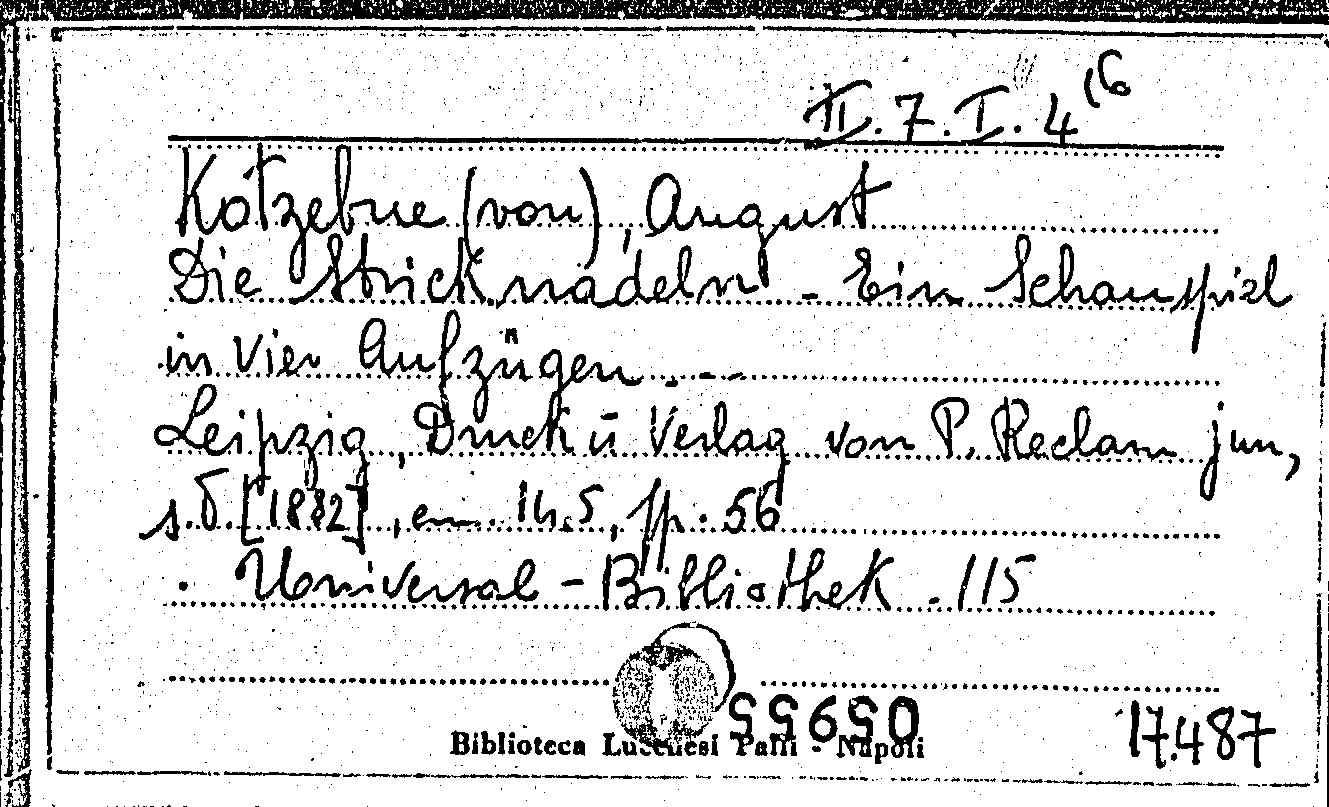 II. 7. I. 4 16
Kotzebue (von), August
Die Stricknadeln - Ein Schauspiel
in vier Aufzügen . - -
Leipzig, Druck ū Verlag von P. Reclam jun,
s.d. [1882], cm. 14.5, pp. 56
. Universal - Bibliothek . 115
055650
Biblioteca Lucchesi Palli - Napoli
17.487